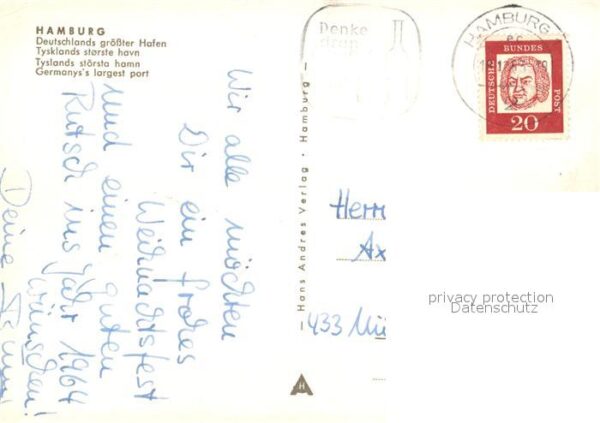 HAMBURG
Deutschlands größter Hafen
Tysklands største havn
Tyslands största hamn
Germanys's largest port
Wir alle möchten
Dir ein frohes
Weihnachtsfest
und einen guten
Rutsch ins Jahr 1964
wünschen!
Deine
— Hans Andres Verlag · Hamburg —
Denke
dran
HAMBURG
DEUTSCHE
BUNDES
POST
20
Herrn
Ax
433 Mü
privacy protection
Datenschutz
A
H